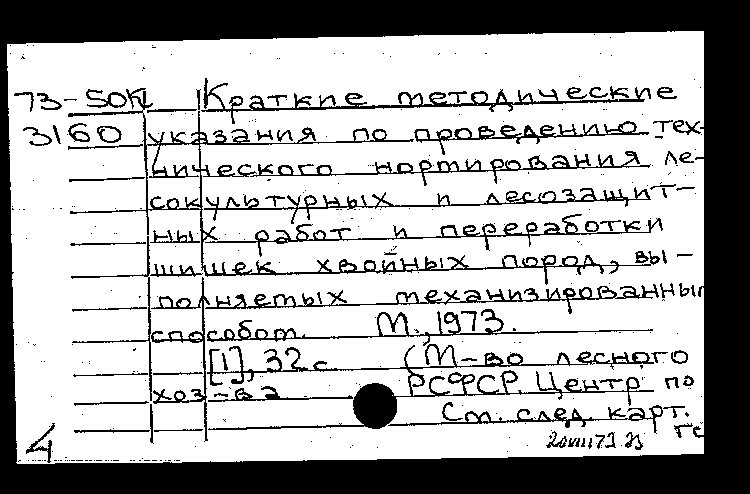 73-50КЦ Краткие методические
3160 указания по проведению тех-
нического нормирования ле-
сокультурных и лесозащит-
ных работ и переработки
шишек хвойных пород, вы-
полняемых механизированным
способом. М., 1973.
[1], 32 с (М-во лесного
хоз-ва РСФСР. Центр по
См. след. карт.
4